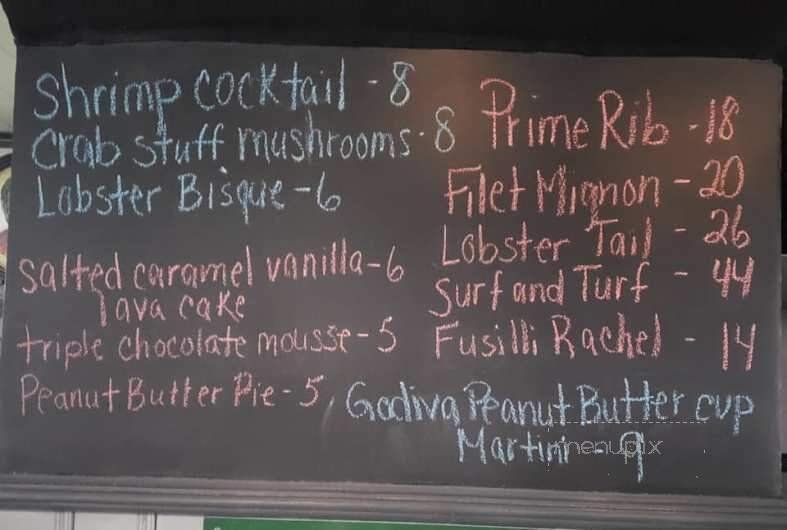 Shrimp cocktail - 8
Crab stuff mushrooms - 8
Lobster Bisque - 6
Salted caramel vanilla - 6
lava cake
triple chocolate mousse - 5
Peanut Butter Pie - 5
Prime Rib - 18
Filet Mignon - 20
Lobster Tail - 26
Surf and Turf - 44
Fusilli Rachel - 14
Godiva Peanut Butter cup
Martini - 9
menupix